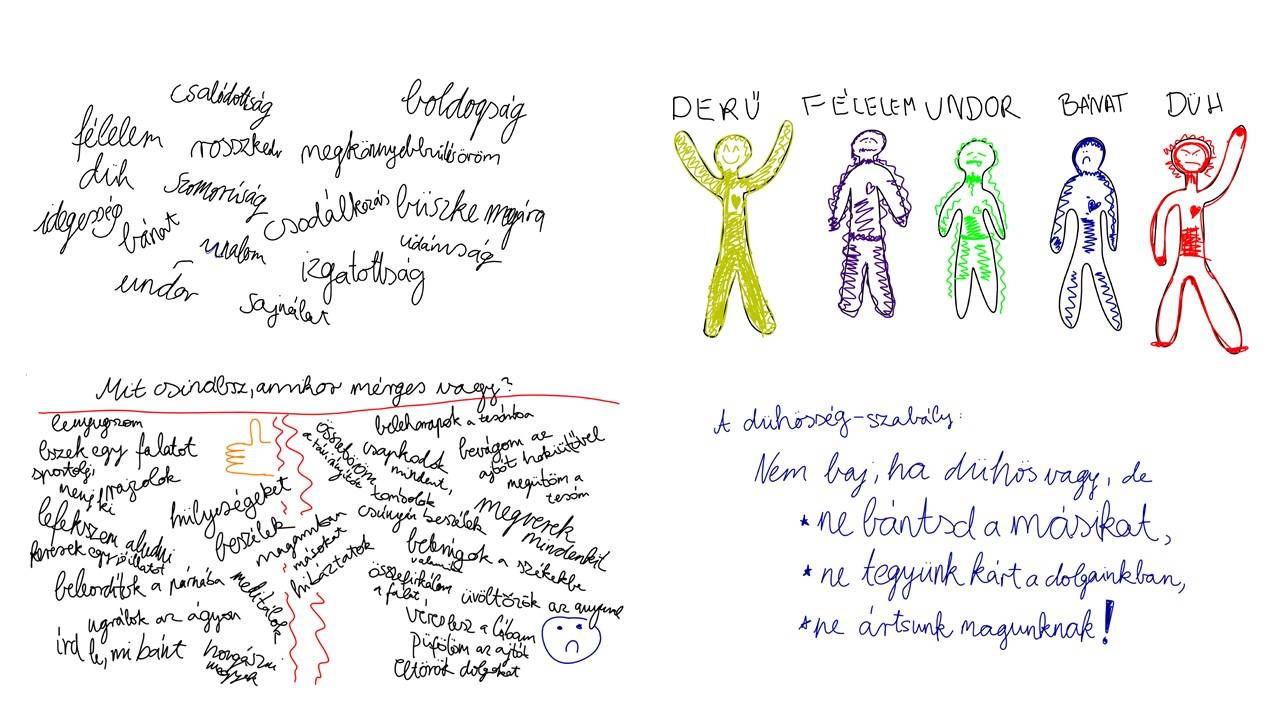 csalódottság
boldogság
félelem
rosszkedv
megkönnyebbülés
öröm
düh
szomorúság
idegesség
bánat
csodálkozás
büszke magára
unalom
vidámság
undor
izgatottság
sajnálat
DERŰ FÉLELEM UNDOR BÁNAT DÜH
Mit csinálsz, amikor mérges vagy?
lenyugszom
eszek egy falatot
sportolj,
menj ki
rajzolok
lefekszem aludni
keresek egy jó illatot
beleordítok a párnába
ugrálok az ágyon
írd le, mi bánt
hülyeségeket
beszélek
magamban
másokat
hibáztatok
meditálok
horgászni
megyek
összetöröm
a távirányítót
beleharapok a tesómba
csapkodok
mindent,
tombolok
csúnyán beszélek
bevágom az
ajtót
megütöm a
tesóm
megverek
mindenkit
belerúgok a székekbe
valamibe
összefirkálom
a falat
üvöltözök az anyummal
véres lesz a lábam
püfölöm az ajtót
eltörök dolgokat
A dühösség-szabály:
Nem baj, ha dühös vagy, de
* ne bántsd a másikat,
* ne tegyünk kárt a dolgainkban,
* ne ártsunk magunknak!